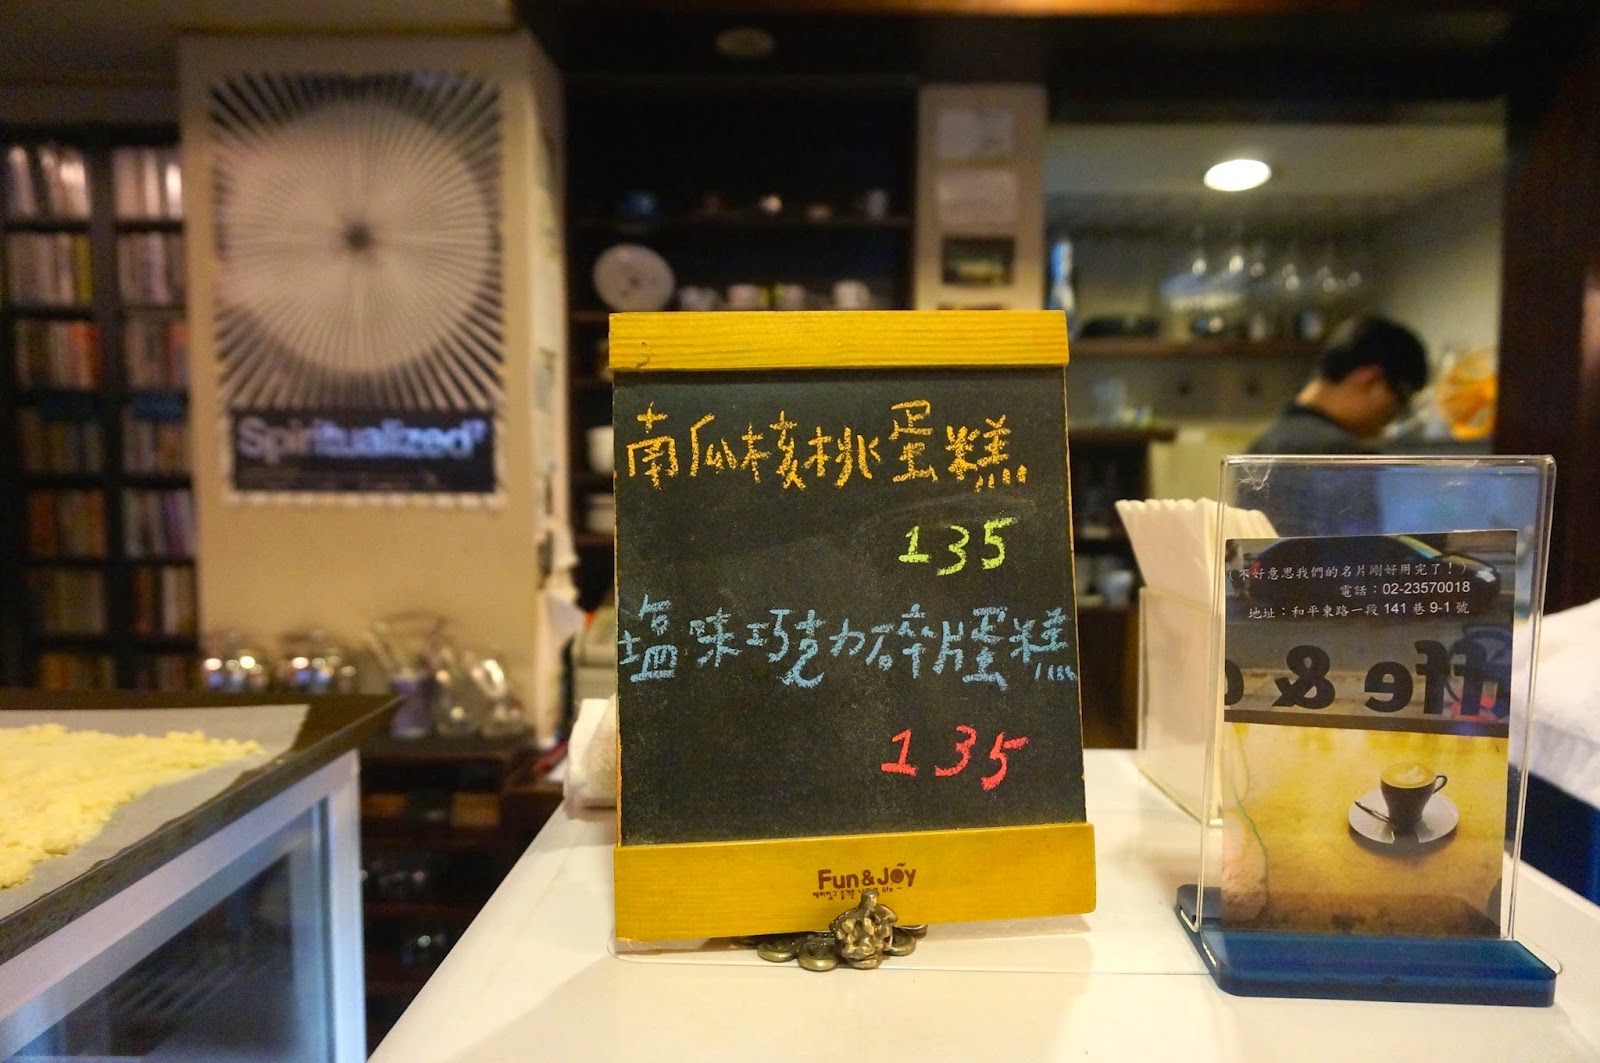 Spiritualized
南瓜核桃蛋糕
135
塩味巧克力碎片蛋糕
135
Fun&Joy
(不好意思我們的名片剛好用完了!)
電話:02-23570018
地址:和平東路一段 141 巷 9-1 號
ffe &